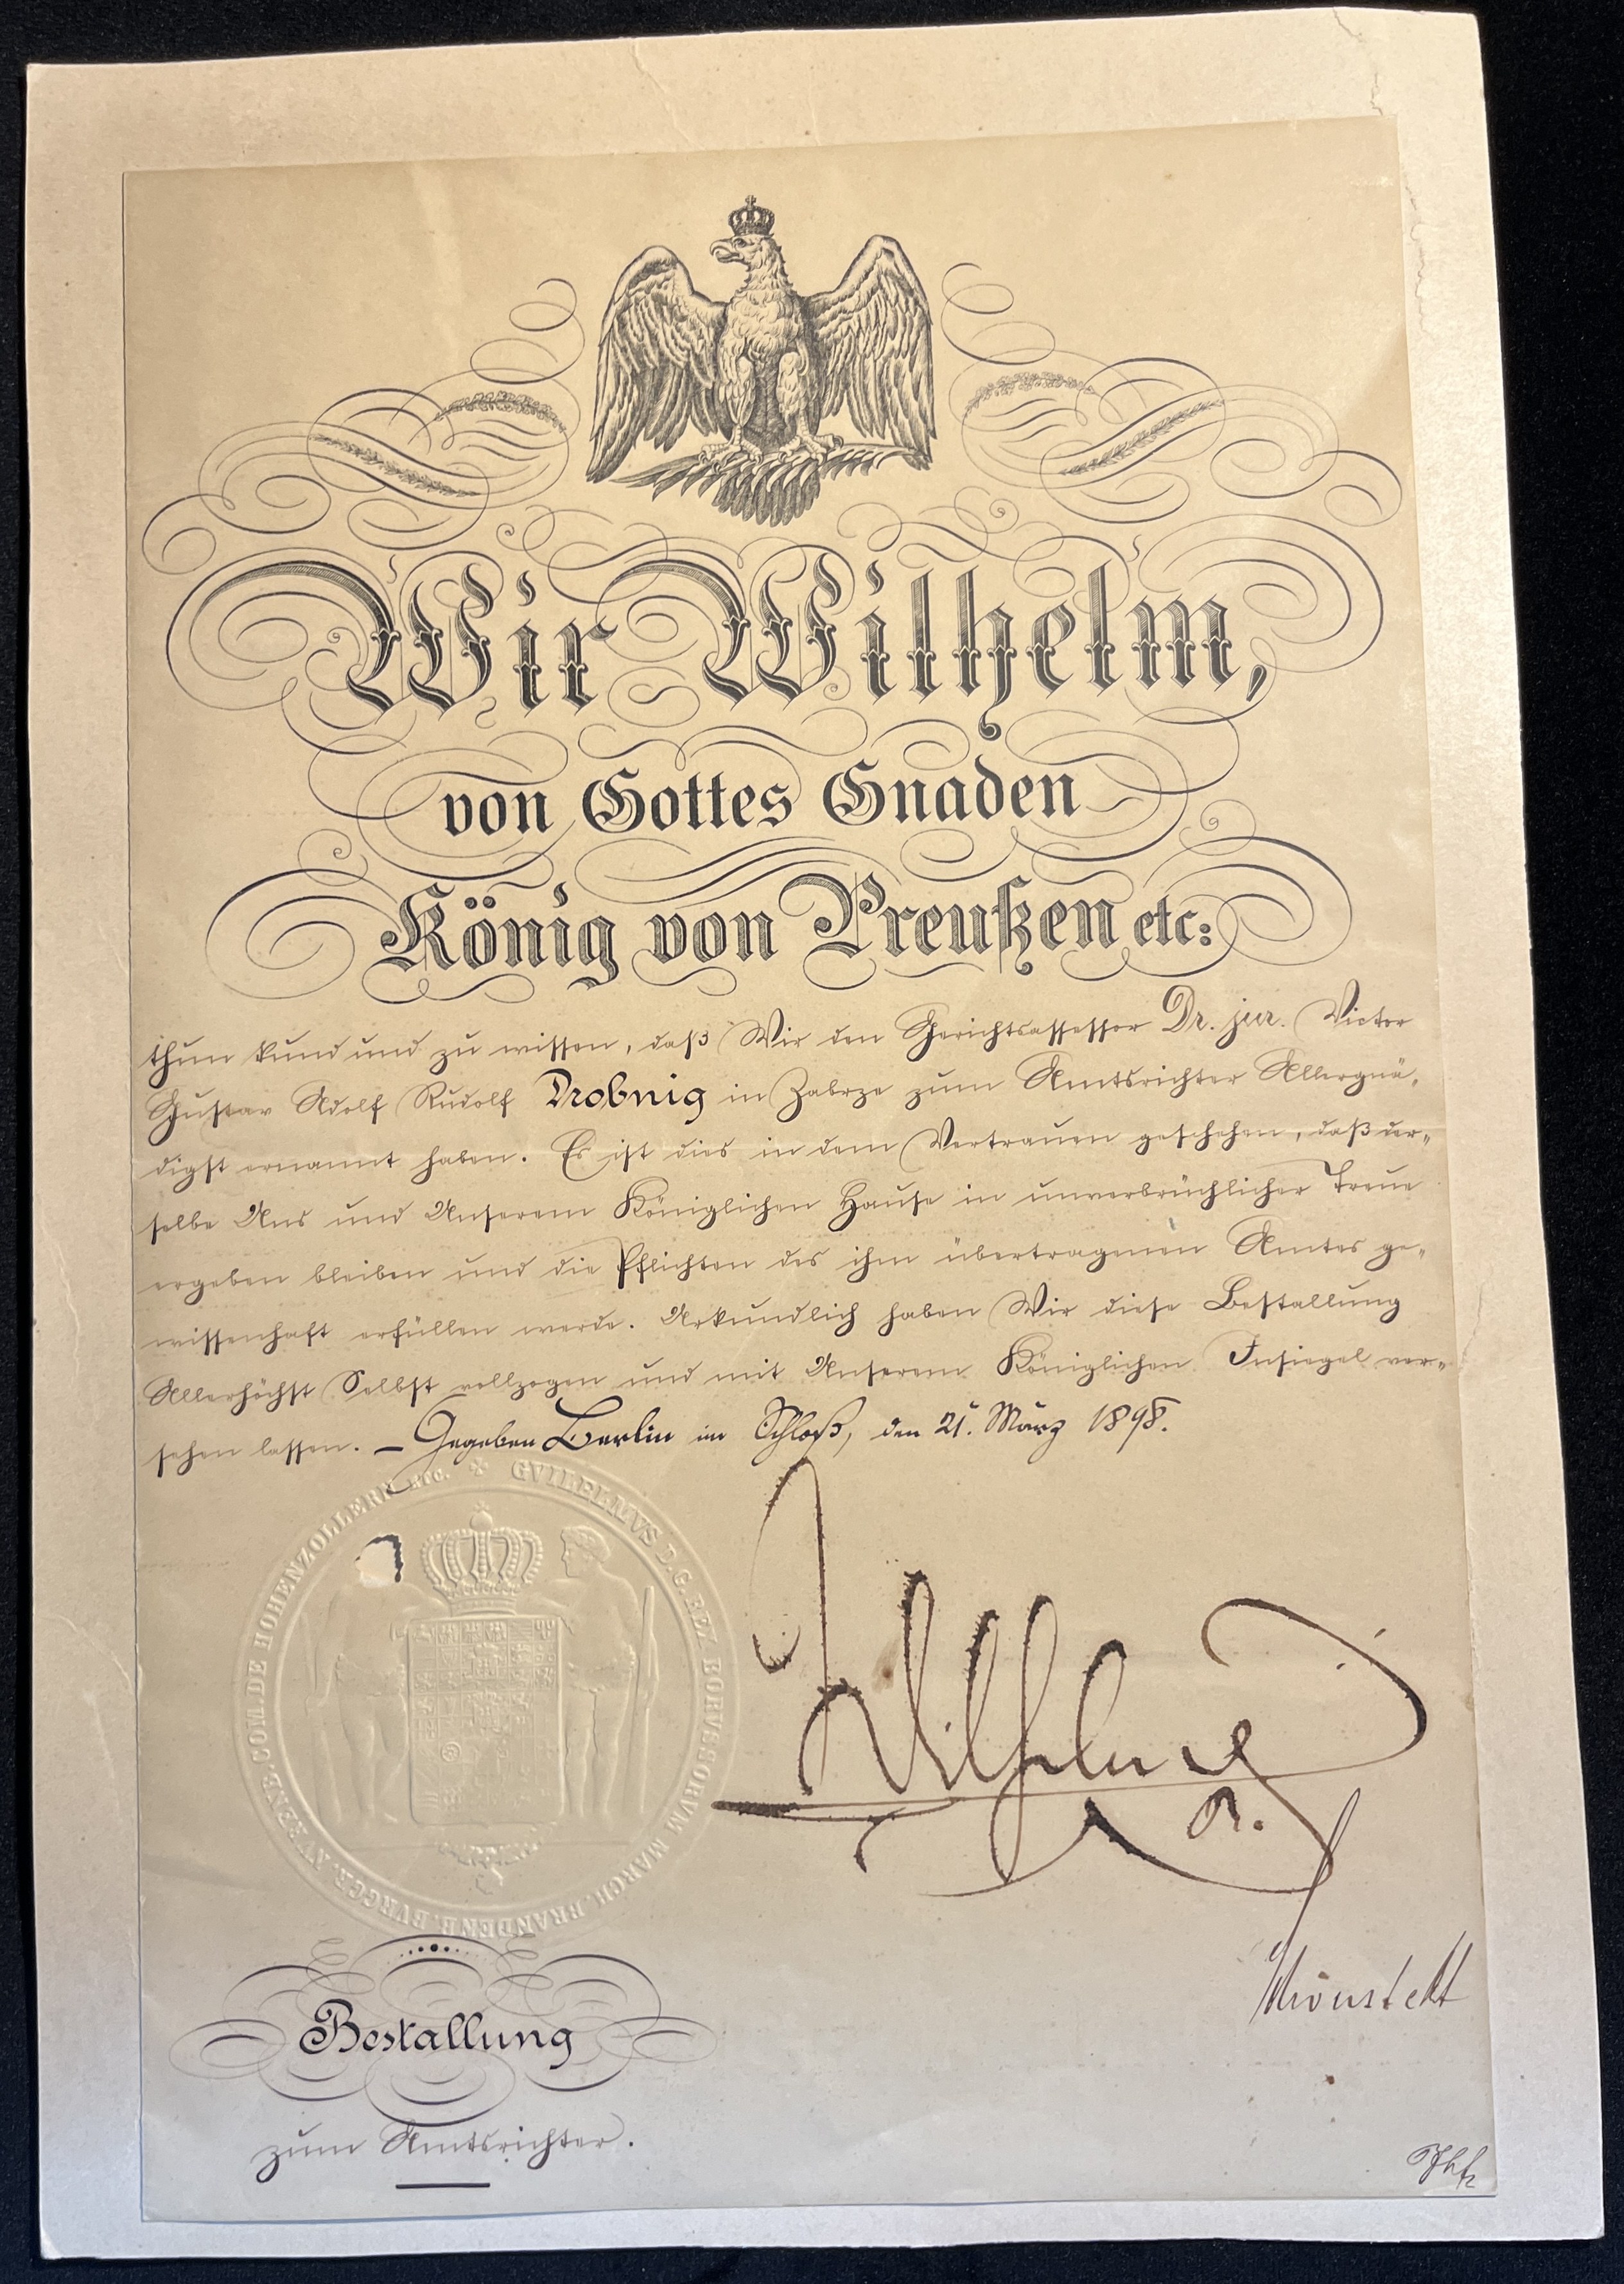 Wir Wilhelm,
von Gottes Gnaden
König von Preußen etc:
thun kund und zu wissen, daß Wir den Gerichtsassessor Dr. jur. Victor
Gustav Adolf Rudolf Drobnig in Zabrze zum Amtsrichter Allergnä-
digst ernannt haben. Es ist dies in dem Vertrauen geschehen, daß der-
selbe Uns und Unserem Königlichen Hause in unverbrüchlicher Treue
ergeben bleiben und die Pflichten des ihm übertragenen Amtes ge-
wissenhaft erfüllen werde. Urkundlich haben Wir diese Bestallung
Allerhöchst Selbst vollzogen und mit Unserem Königlichen Insiegel ver-
sehen lassen. – Gegeben Berlin im Schloß, den 21. März 1898.
GVILELMVS D. G. REX BORVSSORVM MARCH. BRANDENB. BVRGGR. NVRENB. COM. DE HOHENZOLLERN ETC.
Wilhelm
R.
Schönstedt
Bestallung
zum Amtsrichter.